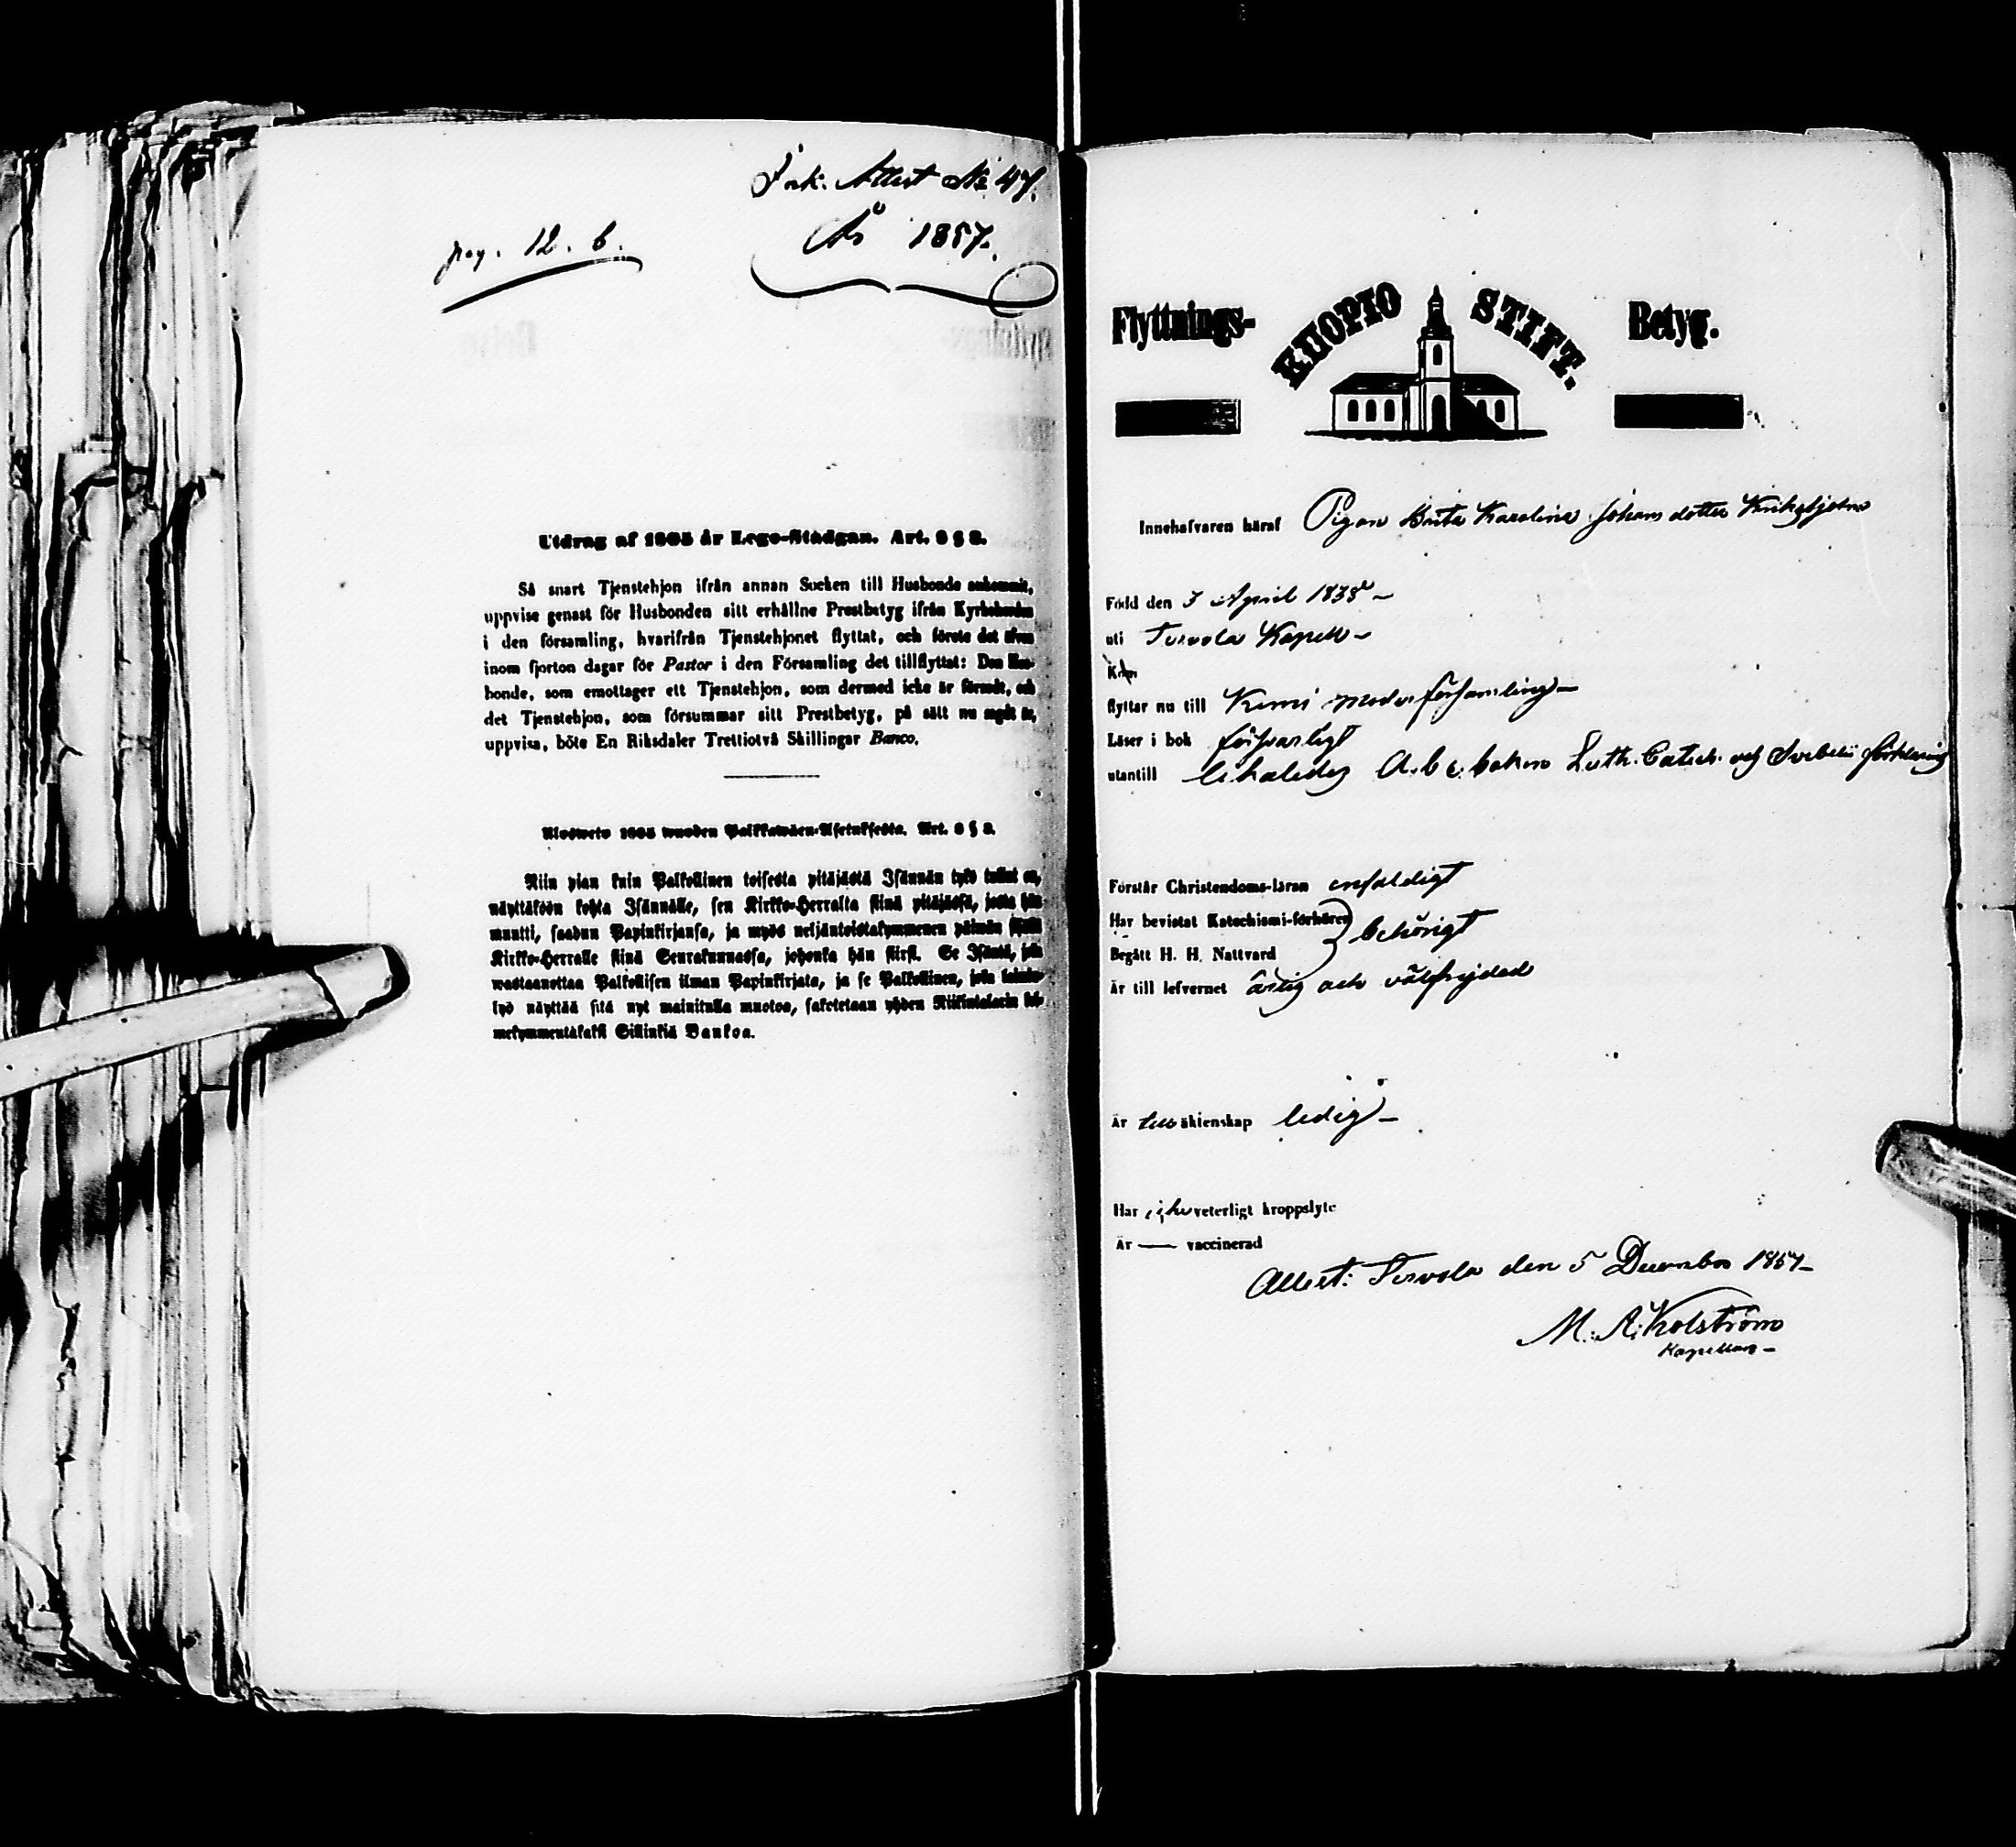 Ink. Attest № 47.
År 1857.
pag. 12. b.
Utdrag af 1805 år Lego-Stadgan. Art. 8 § 8.
Så snart Tjenstehjon ifrån annan Socken till Husbonde ankommit,
uppvise genast för Husbonden sitt erhållne Prestbetyg ifrån Kyrkoherden
i den församling, hvarifrån Tjenstehjonet flyttat, och förete det äfven
inom fjorton dagar för Pastor i den Församling det tillflyttat: Den Hus-
bonde, som emottager ett Tjenstehjon, som dermed icke är försedt, och
det Tjenstehjon, som försummar sitt Prestbetyg, på sätt nu sagdt är,
uppvisa, böte En Riksdaler Trettiotvå Skillingar Banco.
Ulosweto 1805 wuoden Palkkawäen-Asetuksesta. Art. 8 § 8.
Niin pian kuin Palkollinen toisesta pitäjästä Isännän tykö tullut on,
näyttäköön kohta Isännälle, sen Kirkko-Herralta siinä pitäjässä, josta hän
muutti, saadun Papinkirjansa, ja myös neljäntoistakymmenen päiwän sisällä
Kirkko-Herralle siinä Seurakunnassa, johonka hän siirsi. Se Isäntä, joka
wastaanottaa Palkollisen ilman Papinkirjata, ja se Palkollinen, joka laimin-
lyö näyttää sitä nyt mainitulla muotoa, saketetaan yhden Riikintalarin kol-
mekymmentäkaksi Sillinkiä Bankoa.
Flyttnings- KUOPIO STIFT. Betyg.
Innehafvaren häraf Pigan Brita Karolina Johans dotter
Född den 3 April 1838 –
uti Tervola Kapell –
flyttar nu till Kemi moderförsamling –
Läser i bok försvarligt
utantill likaledes A.b.c. boken Luth. Catech. och Svebelii förklaring
Förstår Christendoms-läran enfaldigt
Har bevistat Katechismi-förhören
behörigt
Begått H. H. Nattvard
Är till lefvernet ärlig och välfrejdad
Är till äktenskap ledig –
Har icke veterligt kroppslyte
Är — vaccinerad
Attest: Tervola den 5 December 1857 –
M. A. Holström
Kapellan –